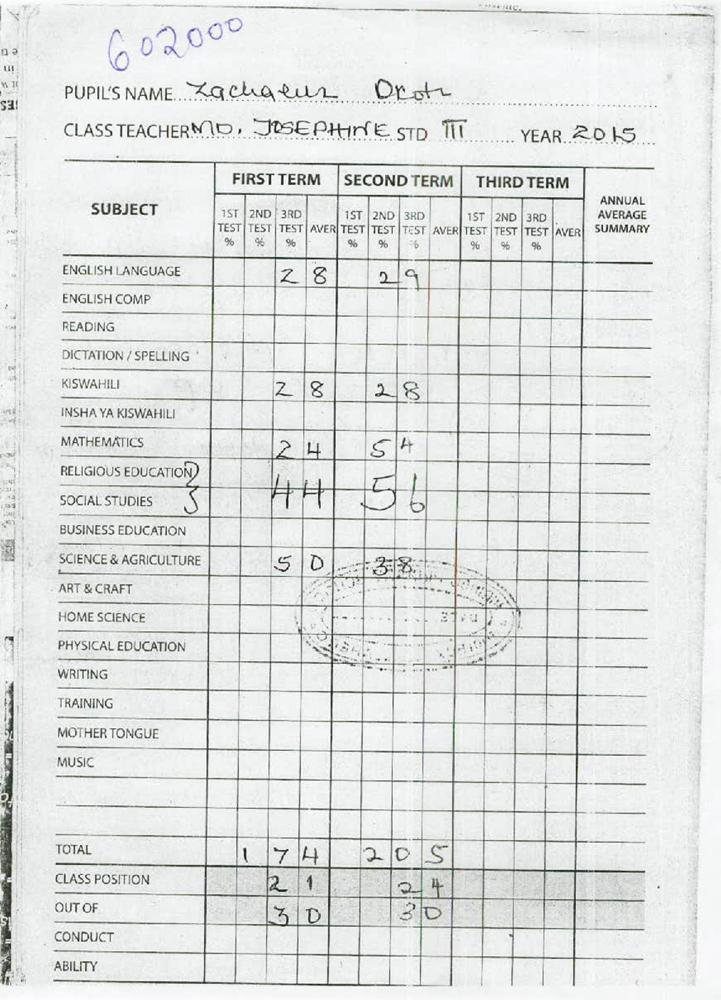 602000
PUPIL'S NAME Zachaeus Okoth
CLASS TEACHER MD. JOSEPHINE STD III YEAR 2015
SUBJECT FIRST TERM SECOND TERM THIRD TERM ANNUAL AVERAGE SUMMARY
1ST TEST % 2ND TEST % 3RD TEST % AVER 1ST TEST % 2ND TEST % 3RD TEST % AVER 1ST TEST % 2ND TEST % 3RD TEST % AVER
ENGLISH LANGUAGE 28 29
ENGLISH COMP
READING
DICTATION / SPELLING
KISWAHILI 28 28
INSHA YA KISWAHILI
MATHEMATICS 24 54
RELIGIOUS EDUCATION
SOCIAL STUDIES 44 56
BUSINESS EDUCATION
SCIENCE & AGRICULTURE 50 38
ART & CRAFT
HOME SCIENCE
PHYSICAL EDUCATION
WRITING
TRAINING
MOTHER TONGUE
MUSIC
TOTAL 174 205
CLASS POSITION 21 24
OUT OF 30 30
CONDUCT
ABILITY